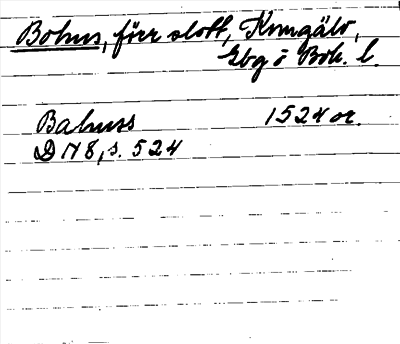 Bohus, förr slott, Kungälv,
Gbg o Boh. l.
Bahuss 1524 or.
DN 8, s. 524